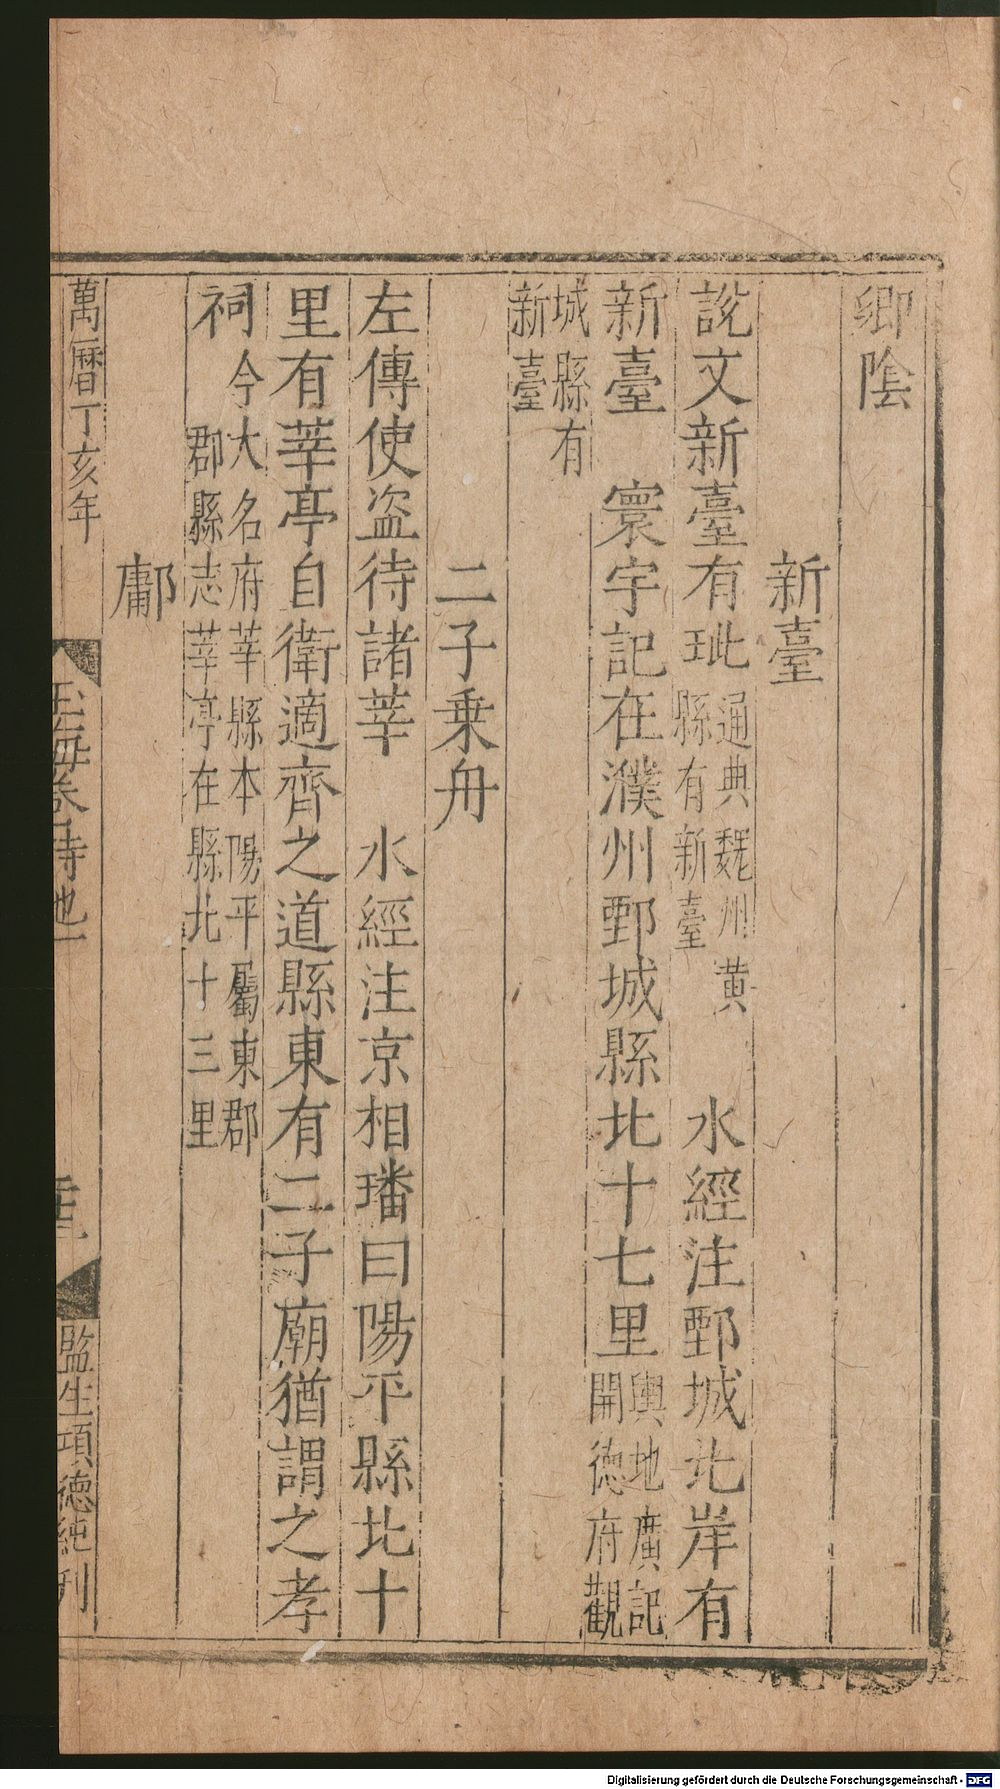 卿隂
新臺
說文新臺有玼通典魏州黄縣有新臺 水經注鄄城北岸有
新臺 寰宇記在濮州鄄城縣北十七里輿地廣記開德府觀
城縣有新臺
二子乗舟
左傳使盗待諸莘 水經注京相璠曰陽平縣北十
里有莘亭自衛適齊之道縣東有二子廟猶謂之孝
祠今大名府莘縣本陽平屬東郡郡縣志莘亭在縣北十三里
鄘
萬曆丁亥年
玉海卷詩地一
監生項德純刊
Digitalisierung gefördert durch die Deutsche Forschungsgemeinschaft - DFG